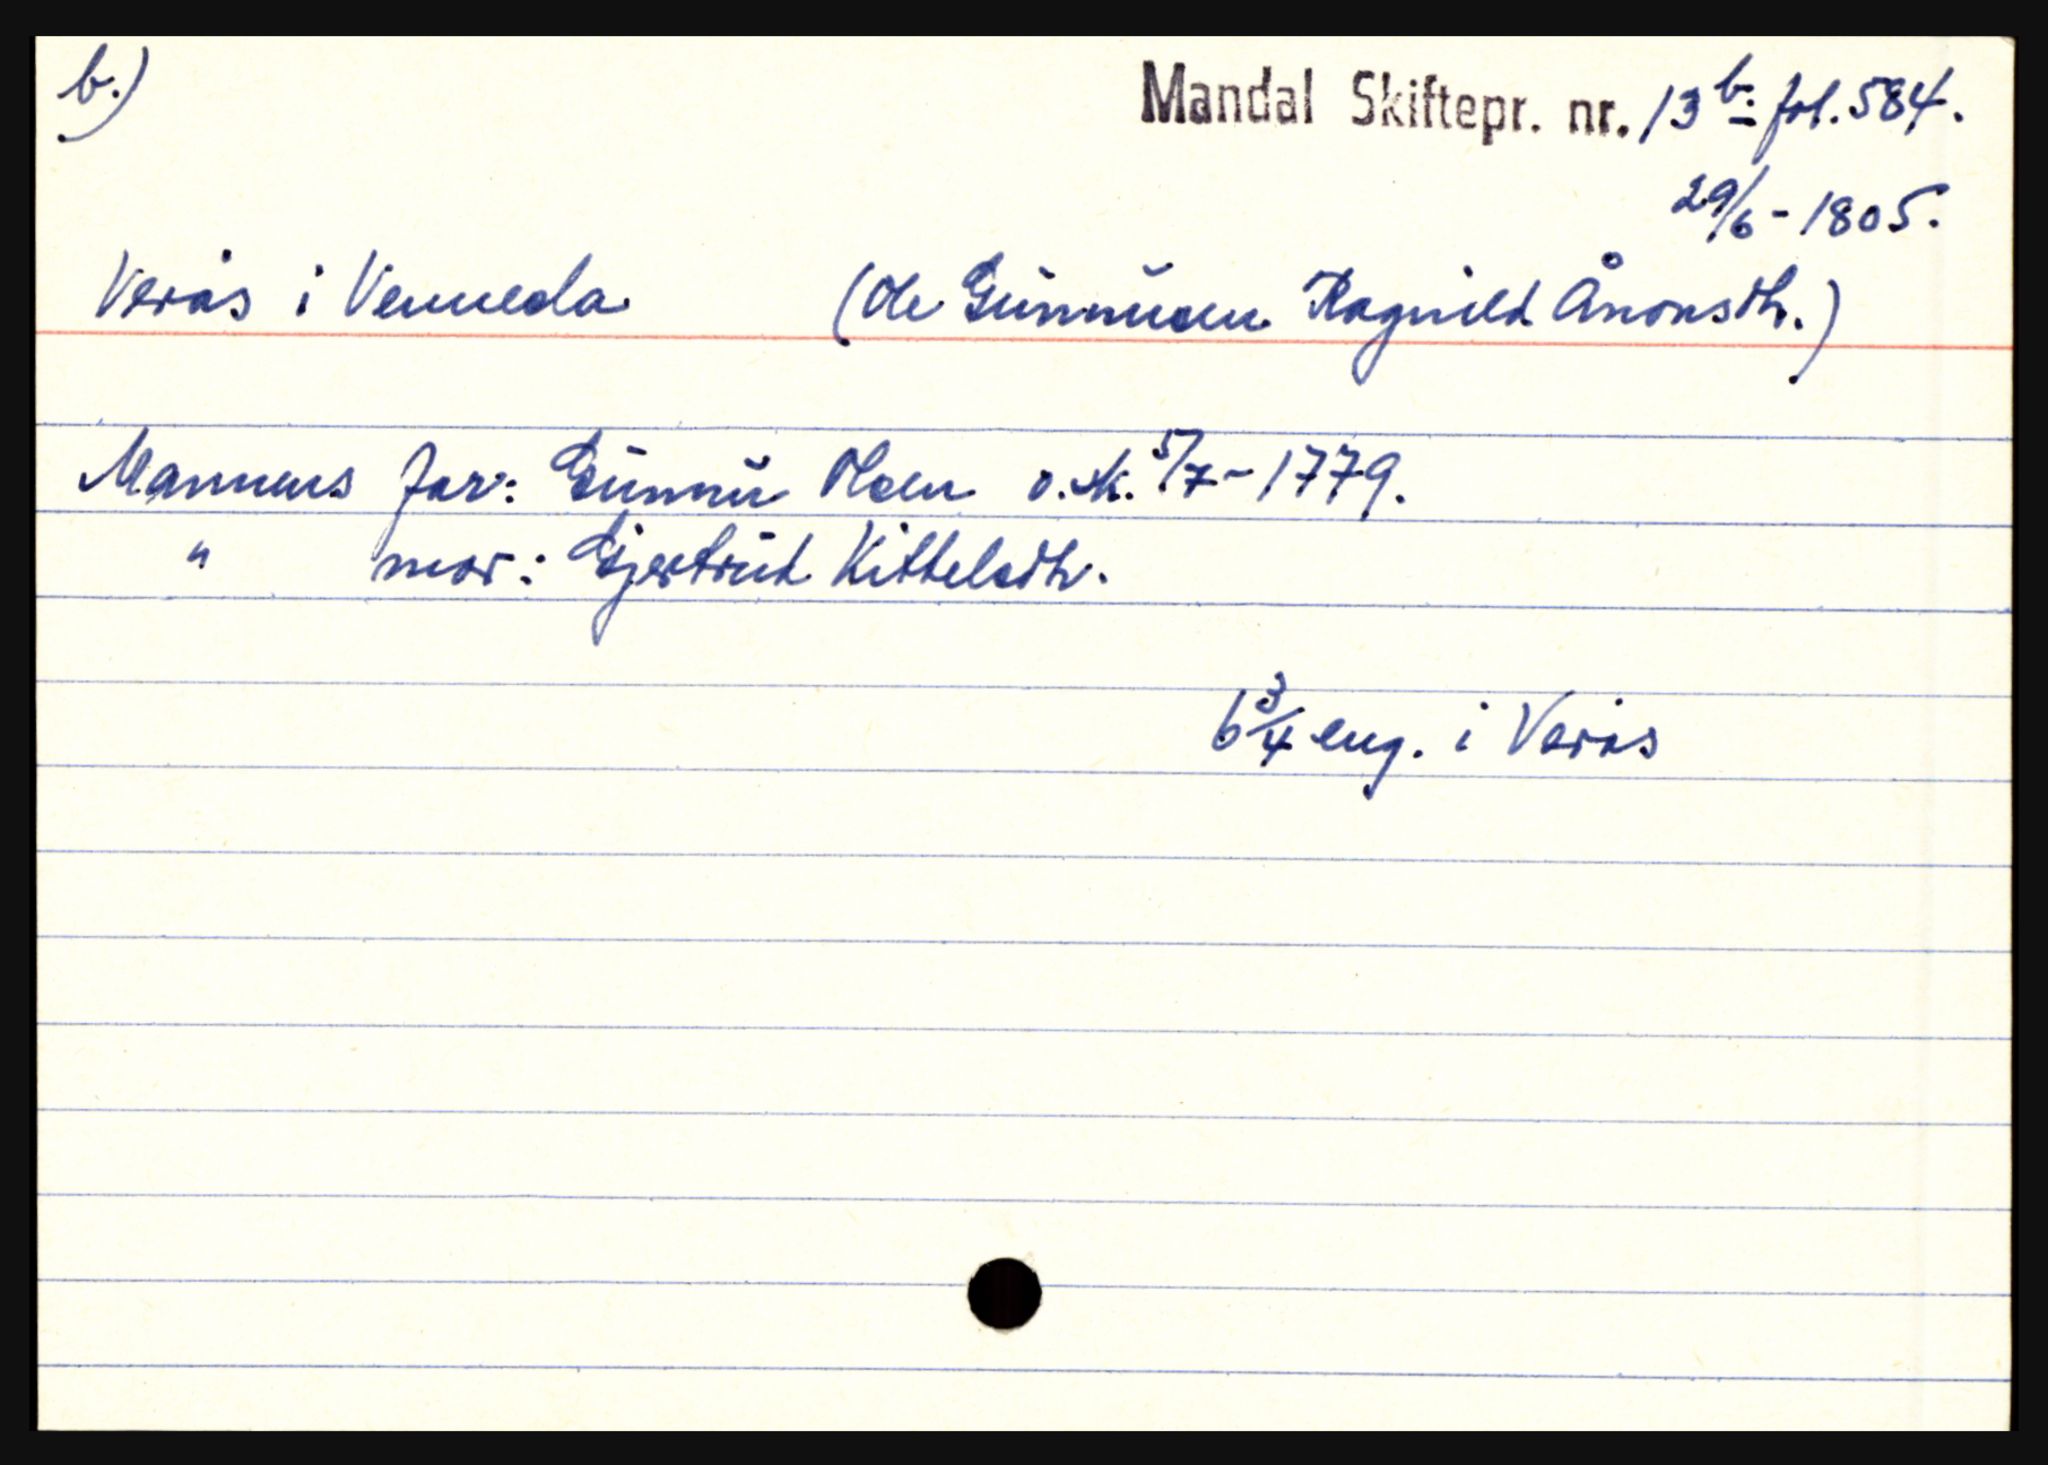 b.)
Mandal Skiftepr. nr. 13 b: fol. 584.
29/6 - 1805.
Verås i Venneda (Ole Gunnusen Ragnild Ånonsdtr.)
Mannens far: Gunnu Olsen o.sk. 5/7 - 1779.
" mor: Gjertrud Kittelsdtr.
6 3/4 eng. i Verås